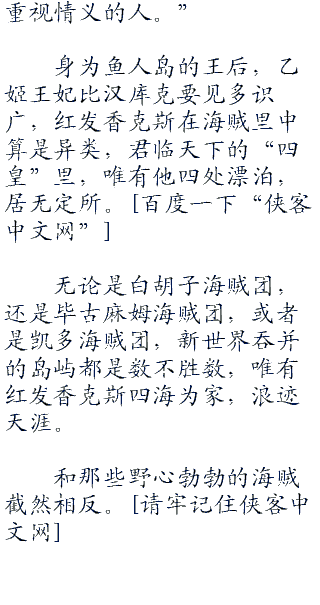 重视情义的人。”
身为鱼人岛的王后，乙
姬王妃比汉库克要见多识
广，红发香克斯在海贼里中
算是异类，君临天下的“四
皇”里，唯有他四处漂泊，
居无定所。[百度一下“侠客
中文网”]
无论是白胡子海贼团，
还是毕古麻姆海贼团，或者
是凯多海贼团，新世界吞并
的岛屿都是数不胜数，唯有
红发香克斯四海为家，浪迹
天涯。
和那些野心勃勃的海贼
截然相反。[请牢记住侠客中
文网]